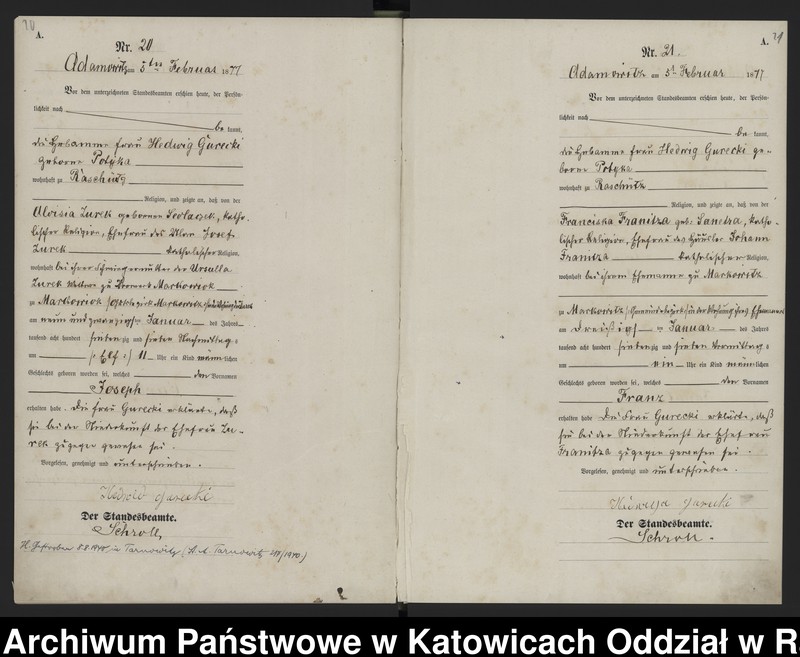 A.
Nr. 20
Adamowitz am 5ten Februar 1877
Vor dem unterzeichneten Standesbeamten erschien heute, der Persön-
lichkeit nach
be kannt,
die Hebamme Frau Hedwig Gurecki
geborne Potyka
wohnhaft zu Raschütz
Religion, und zeigte an, daß von der
Aloisia Zurek geborenen, katho-
lischer Religion, Ehefrau des Josef
Zurek katholischer Religion,
wohnhaft bei ihrer Schwiegermutter der Ursulla
Zurek zu Markowiok
zu Markowiok
am neun und zwanzigsten Januar des Jahres
tausend acht hundert siebenzig und sieben Nachmittag s
um (: Elf :) 11 Uhr ein Kind männ lichen
Geschlechts geboren worden sei, welches den Vornamen
Joseph
erhalten habe. Die Frau Gurecki erklärte, daß
sie bei der Niederkunft der Ehefrau Zu-
rek zugegen gewesen sei.
Vorgelesen, genehmigt und unterschrieben.
Gurecki
Der Standesbeamte.
Schroll
Gestorben 8.8.1940 in Tarnowitz (St. A. Tarnowitz /1940)
A.
Nr. 21.
Adamowitz am 5t Februar 1877
Vor dem unterzeichneten Standesbeamten erschien heute, der Persön-
lichkeit nach
be kannt,
die Hebamme Frau Hedwig Gurecki ge-
borne Potyka
wohnhaft zu Raschütz
Religion, und zeigte an, daß von der
Franciska Franitza geb:, katho-
lischer Religion, Ehefrau des Häusler Johann
Franitza katholischer Religion,
wohnhaft bei ihrem Ehemanne zu Markowitz
zu Markowitz in der Wohnung ihres Ehemannes
am dreißigsten Januar des Jahres
tausend acht hundert siebenzig und sieben Vormittag s
um ein Uhr ein Kind männlichen
Geschlechts geboren worden sei, welches den Vornamen
Franz
erhalten habe. Die Frau Gurecki erklärte, daß
sie bei der Niederkunft der Ehefrau
Franitza zugegen gewesen sei.
Vorgelesen, genehmigt und unterschrieben.
Gurecki
Der Standesbeamte.
Schroll.
Archiwum Państwowe w Katowicach Oddział w R